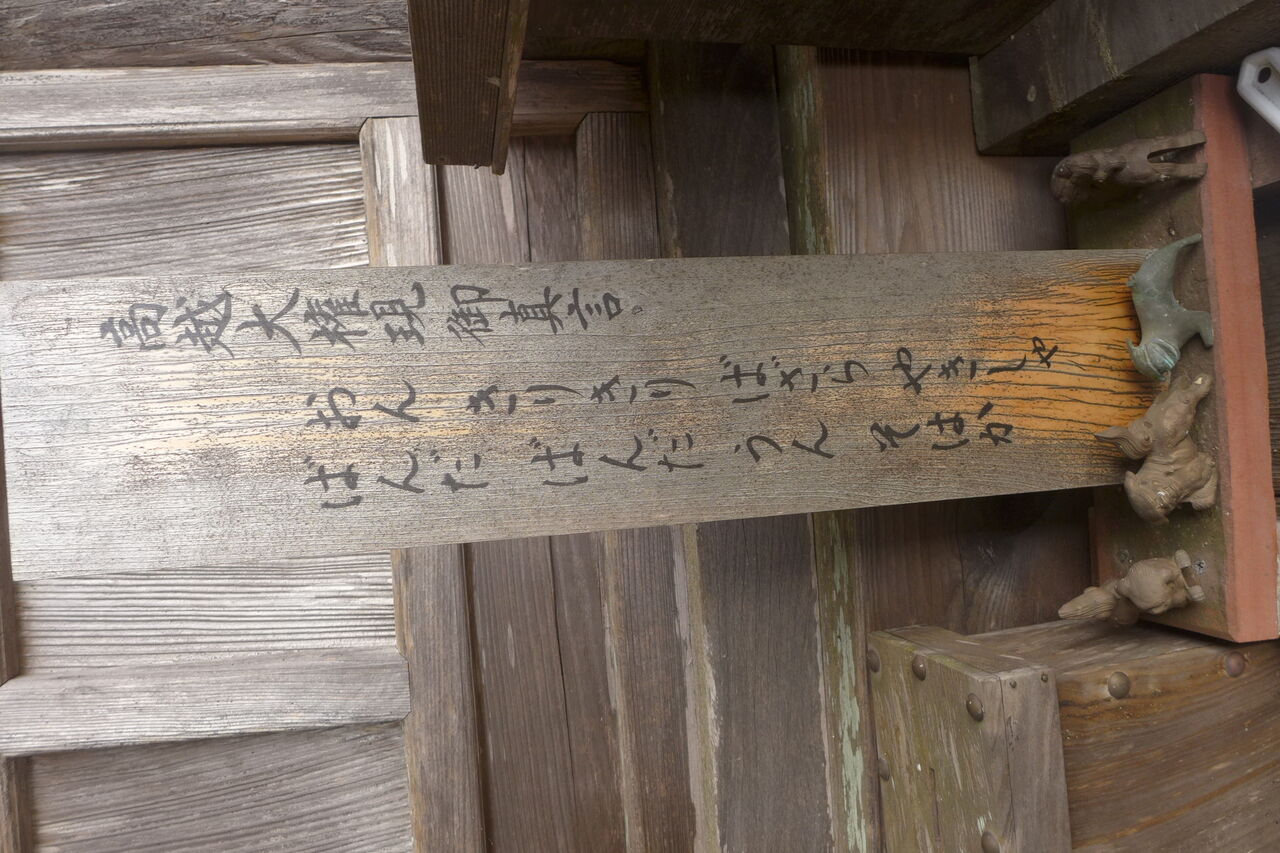 高越大権現御真言。
おん きり きり ばざら やきしゃ
ばんだ ばんだ うん そはか